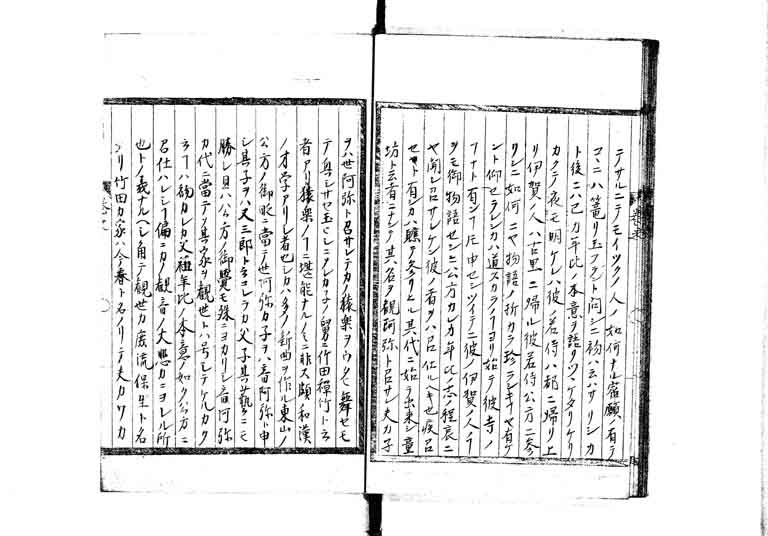 テサルニテノモイツクノ人ノ如何ナル宿願ノ有テ
コヽニハ篭リ玉フソト問シニ初ハ云ハサリシカ
ト後ニハ己カ年比ノ本意ヲ語リツヽケタリケリ
カクテ夜モ明ケレハ彼ノ若侍ハ都ニ帰リ上
リ伊賀ノ人ハ古里ニ帰ル彼若侍公方ニ参
リシニ如何ニヤ物語ノ折カラ珍ラシキヤ有ケ
ント仰セラレシカハ道スカラノヨリ始テ彼寺ノ
フナト有シ申セシツイテニ彼ノ伊賀ノ人ノ
ヲモ御物語セシニ公方カレカ年比ノ志ノ程哀ニ
ヤ聞シ召サレケン彼ノ者ヲハ召仕ルヘキ也疾召
セト有シカハ軈テ参リヒル其代ニ始出来シ童
坊ト云者ニナシテ其名ヲ観阿弥ト召サレ夫カ子
ヲハ世阿弥ト召サレテカ猿楽ヲウタヒ舞セモ
テ興シサセ玉ヒシニソレカ子ノ聟ニ竹田禅竹ト云
者アリ猿楽ノニ堪能ナルノミニ非ス頗和漢
ノ才学アリシ者也シカハ多ノ新曲ヲ作ル東山ノ
公方ノ御眤ニ當テ世阿弥カ子ヲハ音阿弥ト申
シ其子ヲハ又三郎ト云コレラカ父子其藝ニモ
勝レ且ハ公方ノ御覺モ殊ニヨカリシ音阿弥
カ代ニ當テ其家ヲ観世トハ号シテケルカク
云ハ初カレカ父祖年比ノ本意ノ如ク公方ニ
召仕ハレシ偏ニカノ観音ノ大悲カニヨレル所
也トノ義ナルヘシ角テ観世カ庶流保生ト名
リ竹田カ家ハ今春ト名ノリテ夫カワカ